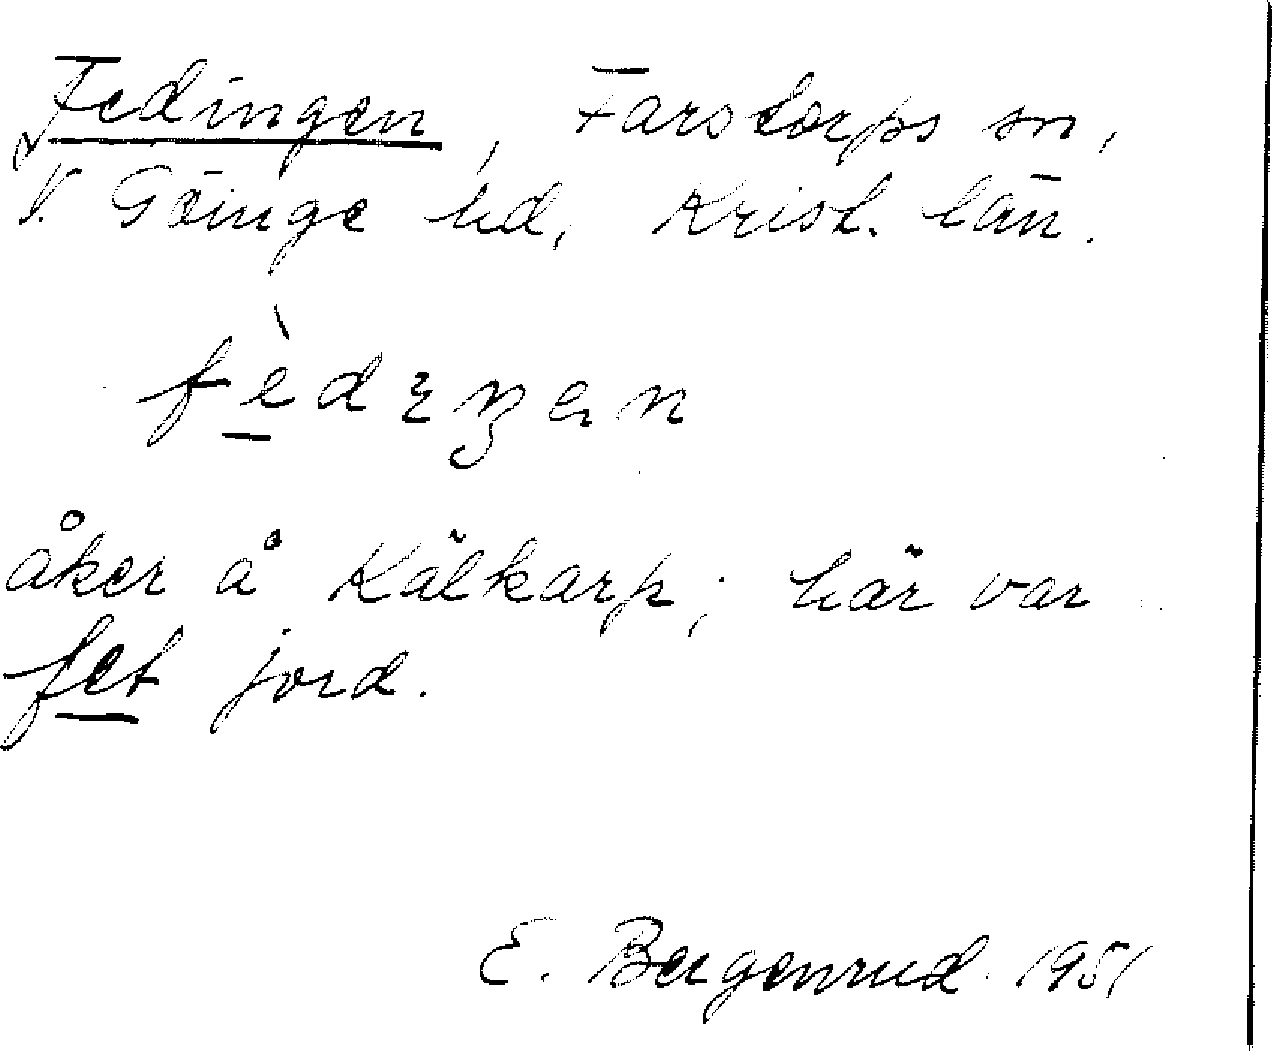 Fedingen, Farstorps sn,
V. Göinge hd, Krist. län.
fèdɪŋən
åker å Kälkarp; här var
fet jord.
E. Bergenrud 1951